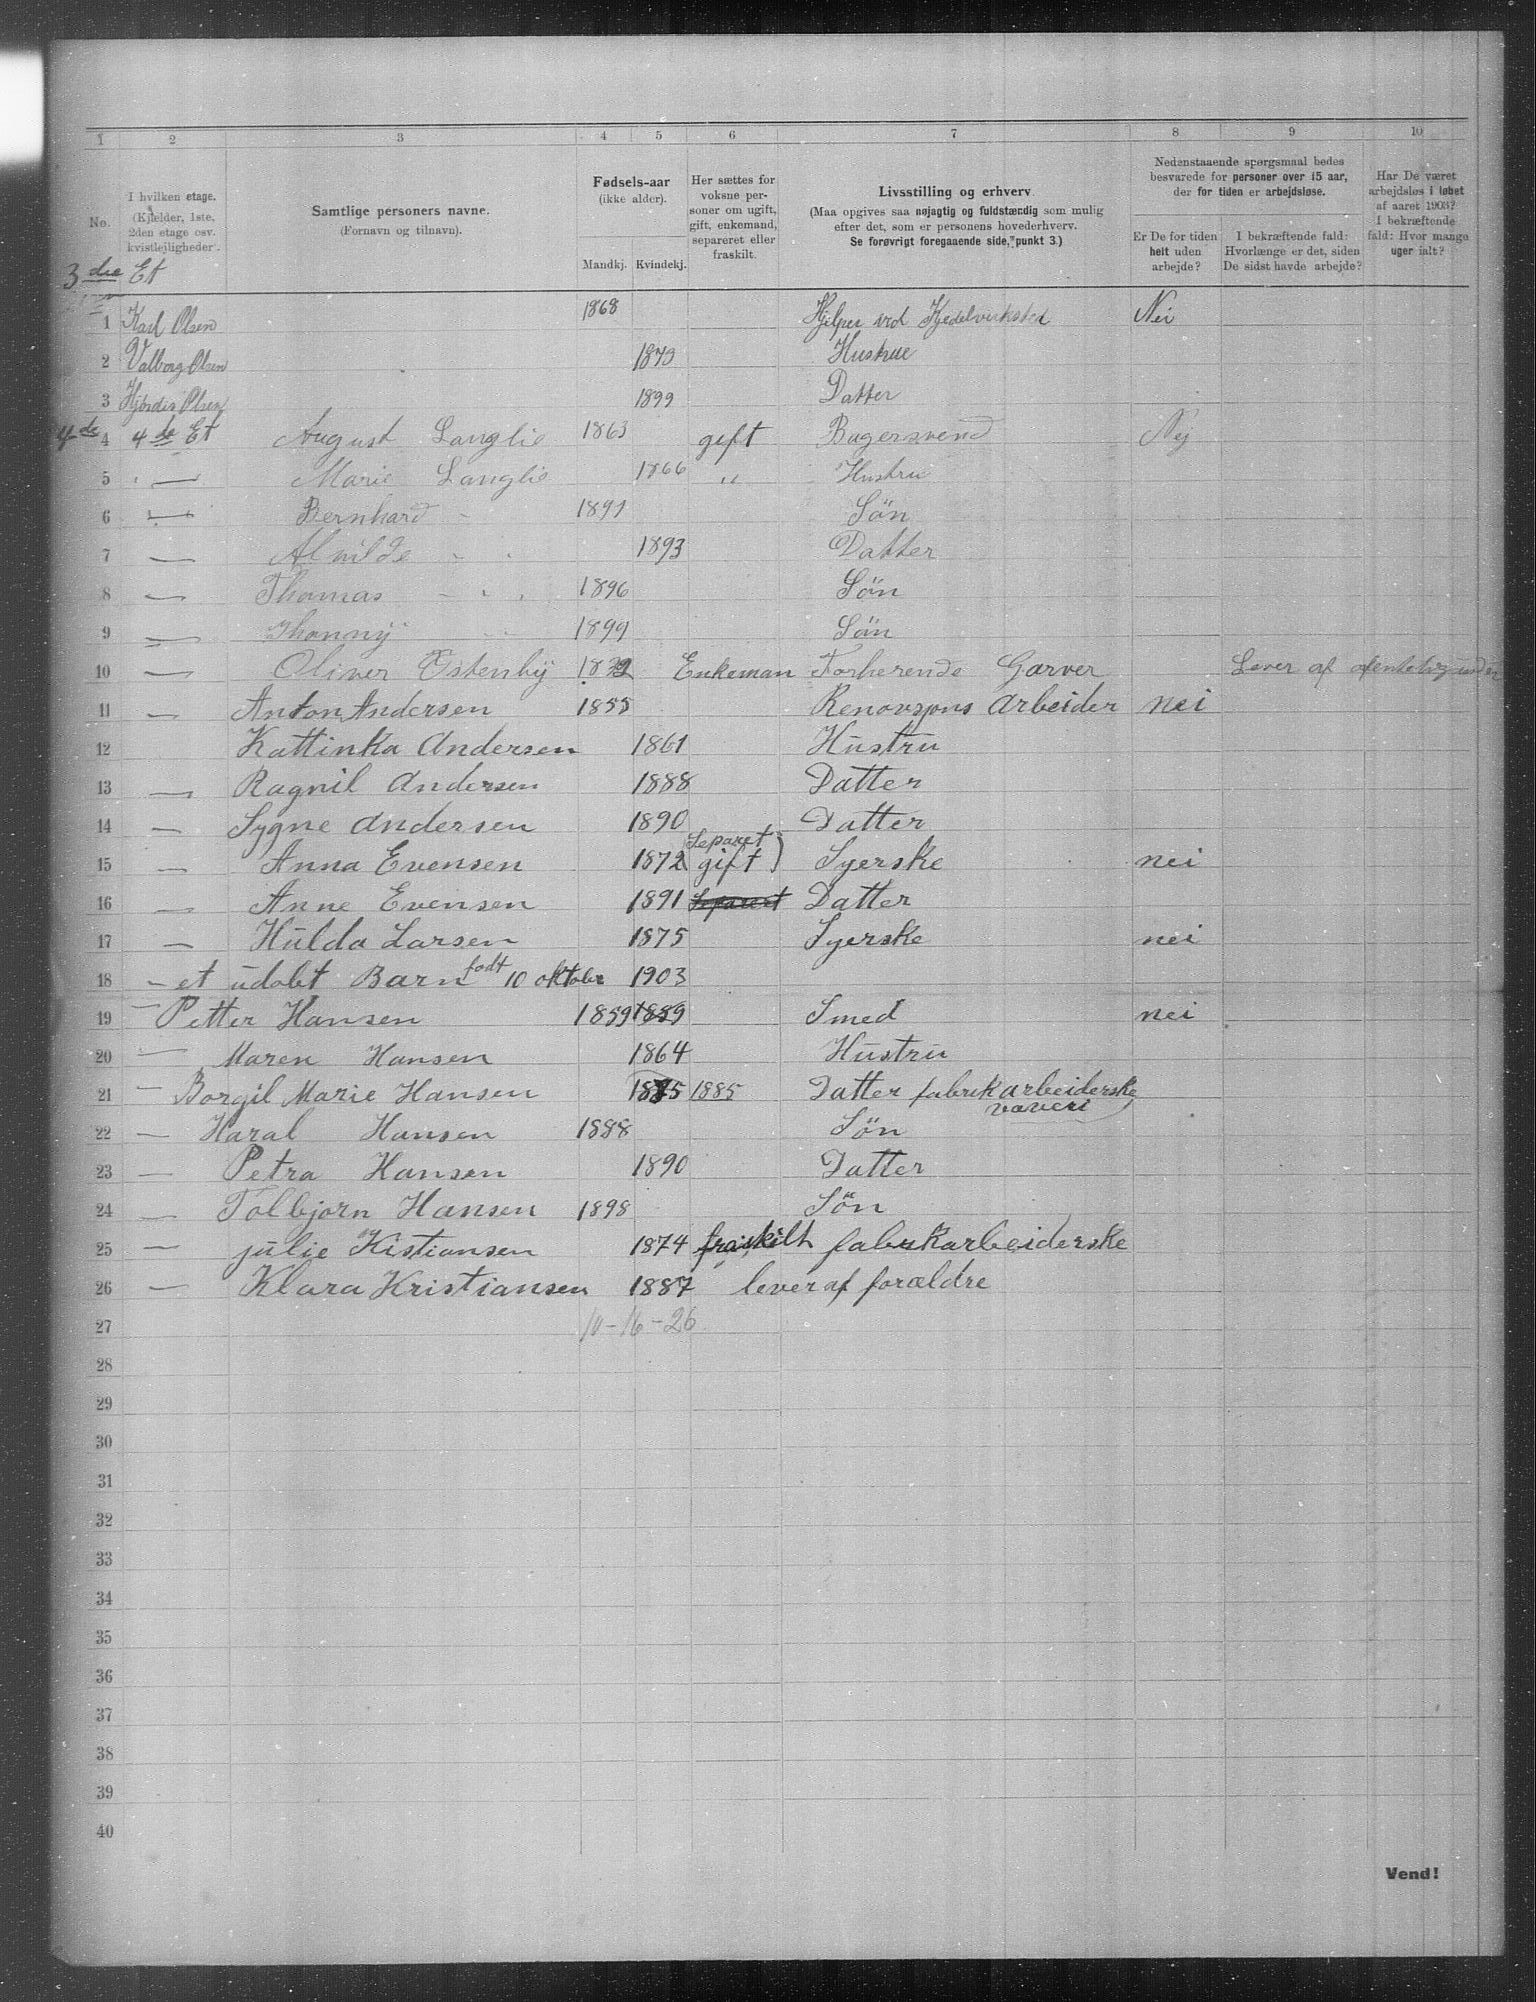 1 2 3 4 5 6 7 8 9 10
No.
I hvilken etage. (Kjelder, 1ste, 2den etage osv. kvistleiligheder.
Samtlige personers navne.
(Fornavn og tilnavn).
Fødsels-aar
(ikke alder).
Mandkj. Kvindekj.
Her sættes for voksne personer om ugift, gift, enkemand, separeret eller fraskilt.
Livsstilling og erhverv.
(Maa opgives saa nøjagtig og fuldstændig som mulig efter det, som er personens hovederhverv.
Se forøvrigt foregaaende side, punkt 3.)
Nedenstaaende spørgsmaal bedes besvarede for personer over 15 aar, der for tiden er arbejdsløse.
Er De for tiden helt uden arbejde?
I bekræftende fald: Hvorlænge er det, siden De sidst havde arbejde?
Har De været arbejdsløs i løbet af aaret 1903? I bekræftende fald: Hvor mange uger ialt?
3 dre Et
1 Karl Olsen 1868 Hjelper ved Kjedelverksted Nei
2 Valborg Olsen 1873 Hustrue
3 Olsen 1899 Datter
4de 4 4de Et August Langlie 1863 gift Bagersvend Nej
5 — Marie Langlie 1866 " Hustru
6 — Bernhard - 1891 Søn
7 — Alvilde - - 1893 Datter
8 — Thomas - - - 1896 Søn
9 — Thonny - - 1899 Søn
10 — Oliver Østenby Enkeman Forherende Garver Lever af
11 — Anton Andersen 1855 Renovsjons Arbeider nei
12 Kattinka Andersen 1861 Hustru
13 — Ragnil Andersen 1888 Datter
14 — Sygne Andersen 1890 Datter
15 — Anna Evensen 1872 (Separet gift) Syerske nei
16 — Anne Evensen 1891 Separert Datter
17 — Hulda Larsen 1875 Syerske nei
18 - et udøbt Barn født 10 oktober 1903
19 — Petter Hansen 1859 1859 Smed nei
20 — Maren Hansen 1864 Hustru
21 — Borgil Marie Hansen 1875 1885 Datter fabrikarbeiderske
væveri
22 — Haral Hansen 1888 Søn
23 — Petra Hansen 1890 Datter
24 — Tolbjørn Hansen 1898 Søn
25 — julie Kistiansen 1874 fraskilt fabrikarbeiderske
26 — Klara Kristiansen 1887 lever af forældre
27 10-16-26
28
29
30
31
32
33
34
35
36
37
38
39
40
Vend!